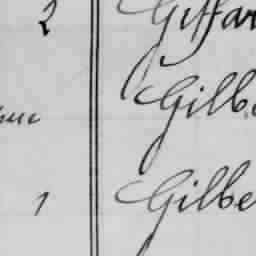 2 Giffar
Gilb
1 Gilbe